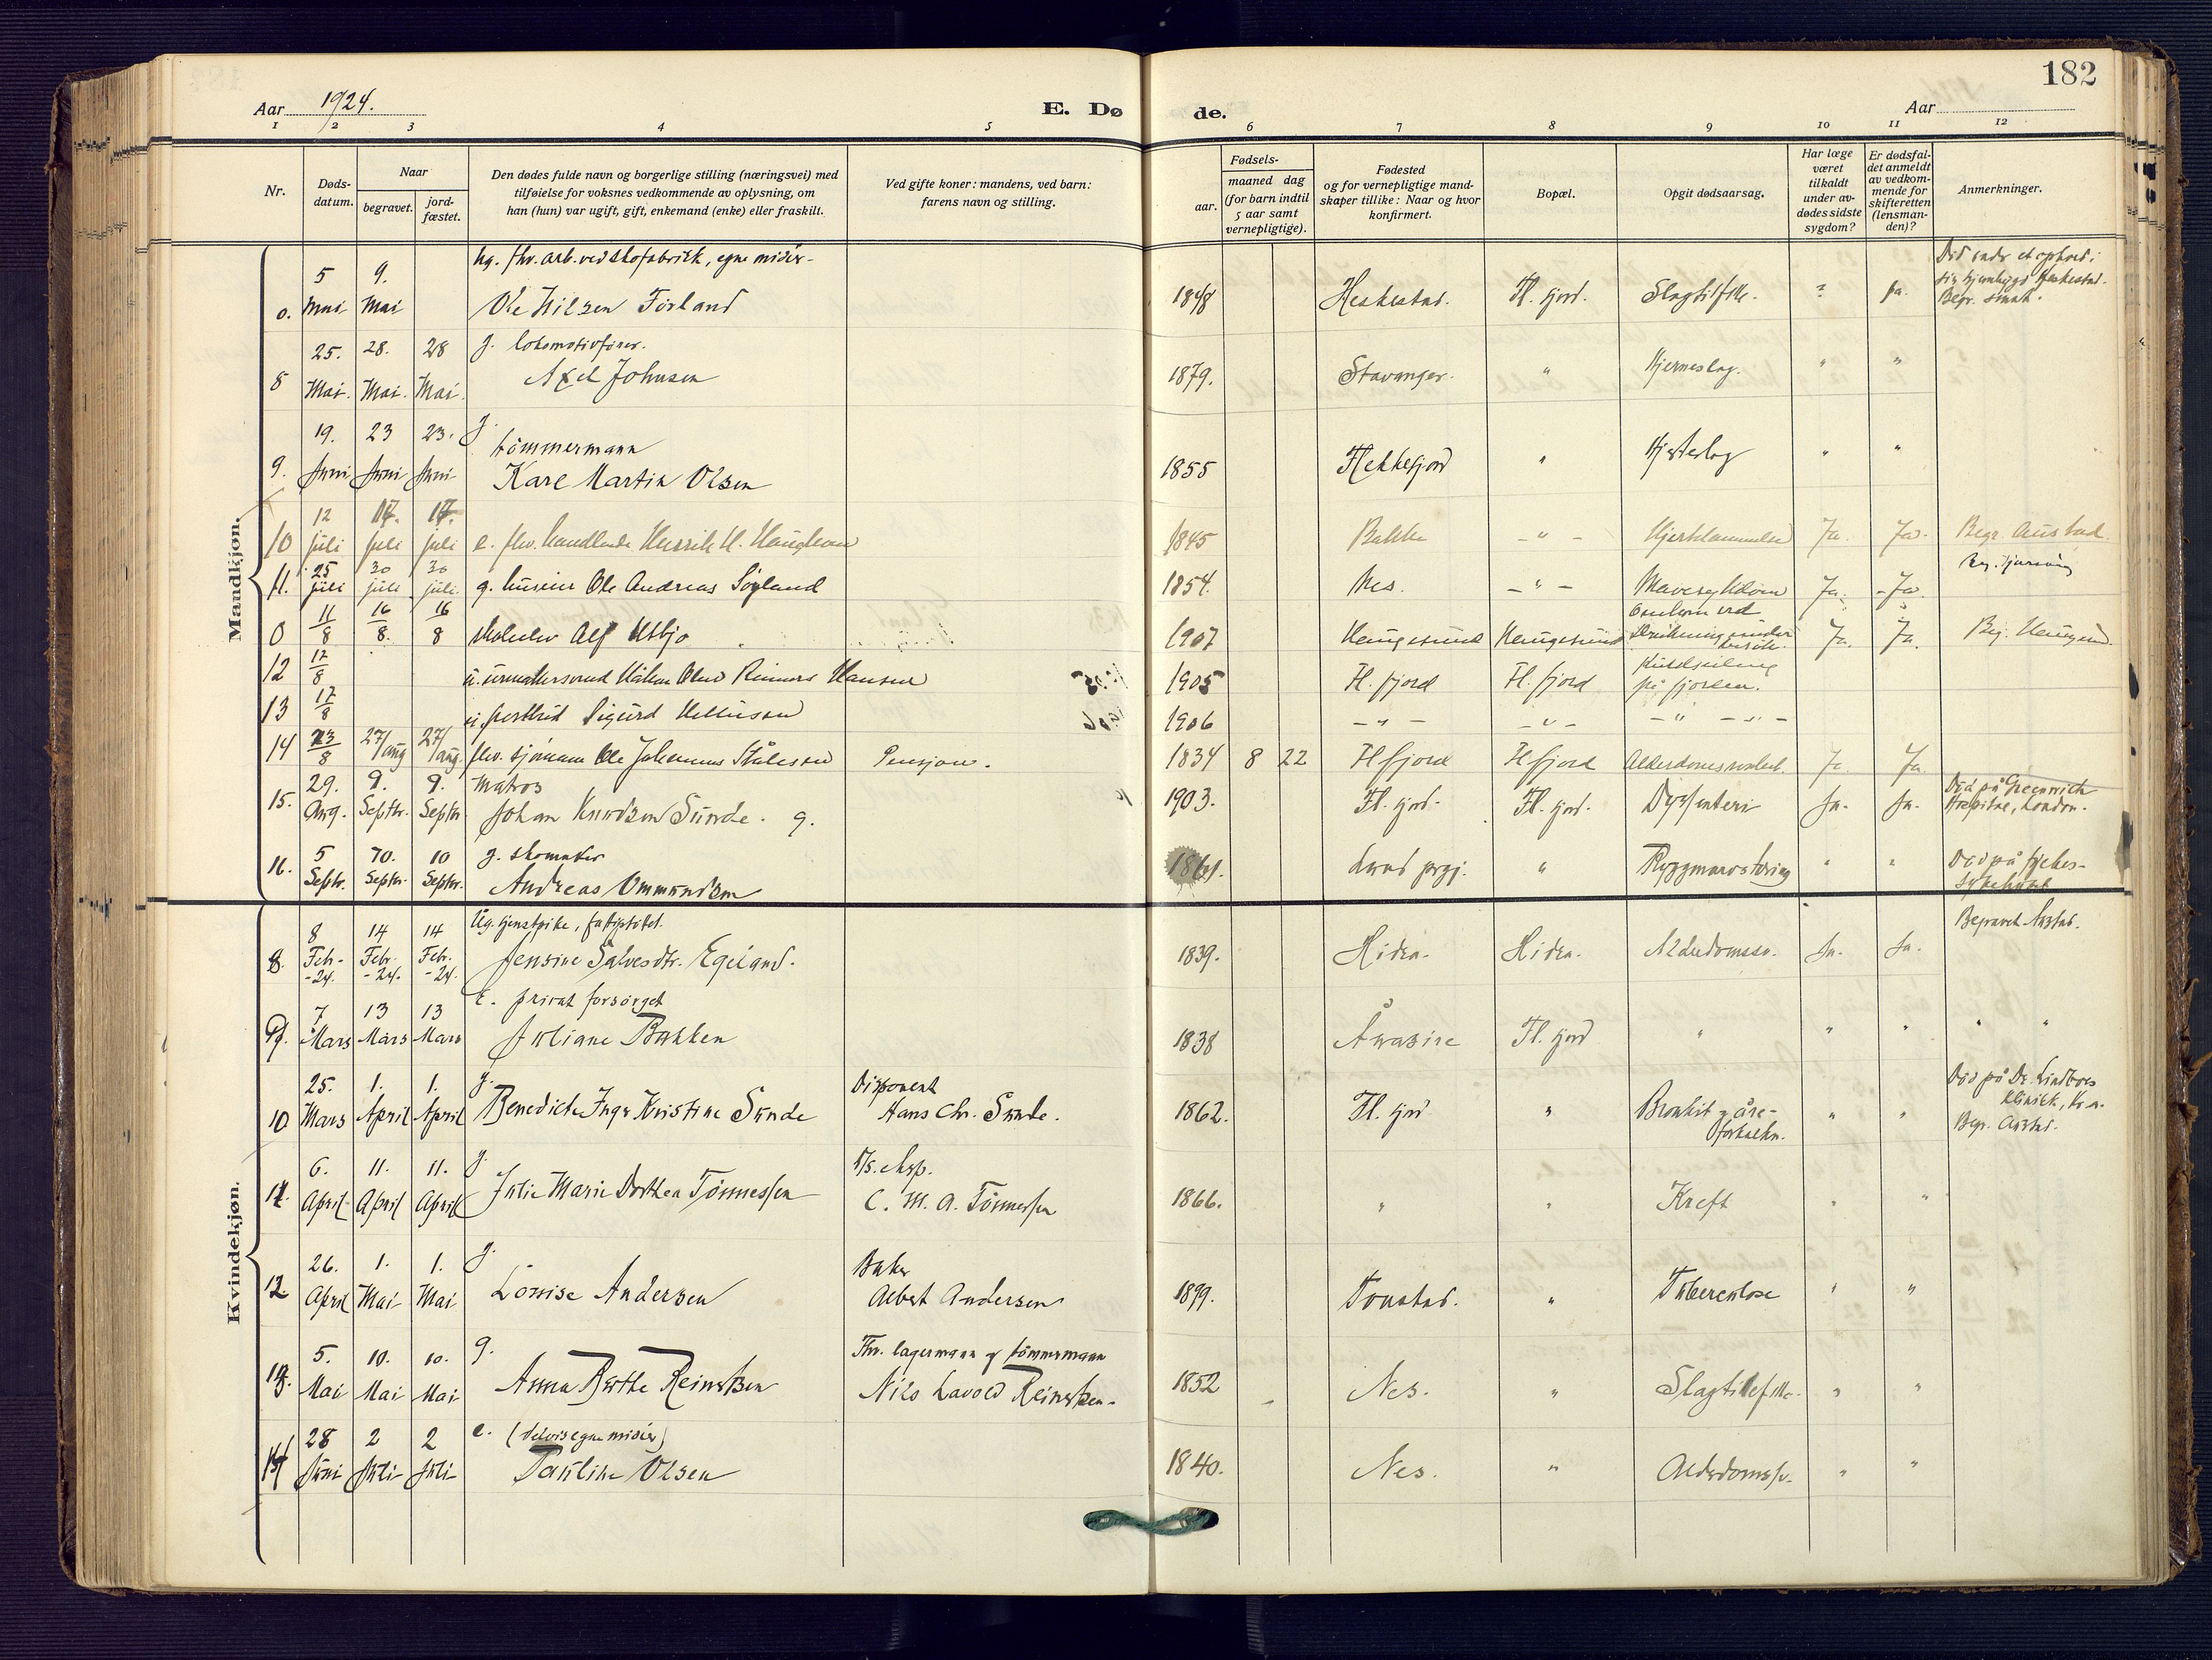 182
Aar 1924.
E. Dø de.
Aar
1 2 3 4 5 6 7 8 9 10 11 12
Nr.
Døds-
datum.
Naar
begravet.
jord-
fæstet.
Den dødes fulde navn og borgerlige stilling (næringsvei) med
tilføielse for voksnes vedkommende av oplysning, om
han (hun) var ugift, gift, enkemand (enke) eller fraskilt.
Ved gifte koner: mandens, ved barn:
farens navn og stilling.
Fødsels-
aar.
maaned dag
(for barn indtil
5 aar samt
vernepligtige).
Fødested
og for vernepligtige mand-
skaper tillike: Naar og hvor
konfirmert.
Bopæl.
Opgit dødsaarsag.
Har læge
været
tilkaldt
under av-
dødes sidste
sygdom?
Er dødsfal-
det anmeldt
av vedkom-
mende for
skifteretten
(lensman-
den)?
Anmerkninger.
Mandkjøn.
fhv. arb. ved skofabrikk, egne midler
0. 5 Mai 9. Mai Ole Nilsen Forland 1848 Heskestad. Fl. fjord. Slagtilfelle. ? ja.
Begr. smst.
g. lokomotivfører.
8 25. Mai. 28. Mai. 28 Mai. Axel Johnsen 1879. Stavanger. " Hjerneslag. " "
g. tømmermann
9. 19. Juni 23 Juni 23. Juni Karl Martin Olsen 1855 Flekkefjord " Hjerteslag " "
10 12 juli 17. juli 17. juli e. fhv. handlende Henrik H. Haughom 1845 Bakke - " - Hjertelammelse Ja. Ja. Begr. Austad.
11. 25 juli 30 juli 30 juli. g. Ole Andreas Søyland 1854. Nes. - " - Ja. - Ja.
0 11/8 16/8. 16/8 Alf Utbjo 1907 Haugesund Haugesund Ja. Ja. Beg. Haugesund.
12 17/8 u. urmakersvend Håkon Olav Reinert Hansen 1905 Fl. fjord Fl. fjord Kuldseiling på fjorden.
13 17/8 u. Sigurd Hellesen 1906 - " - - " - - " - - " -
14 23/8 27/aug 27/aug. fhv. sjømann Ole Johannes Ståleson Pensjon. 1834 8 22 Fl fjord Fl fjord Ja Ja.
Matros
15. 29. Aug. 9. Septbr. 9. Septbr Johan Knudsen Sunde. g. 1903. Fl. fjord. Fl. fjord. Dyssenteri Ja. Ja. Død på Greenwich Hospital, London.
g. skomaker
16. 5 Septbr. 10. Septbr. 10 Septbr. Andreas Ommundsen 1861. Lund prgj. " Ryggmarvstæring " " Død på fylkes-
sykehuset
Kvindekjøn.
Ug. tjenstpike, fattigstøttet.
8. 8 Feb- -24. 14 Febr. -24. 14 Febr. -24. Jensine Salvesdtr. Egeland. 1839. Hidra. Hidra. Alderdomssv. Ja. Ja. Begravet Austad.
E. privat forsørget
9. 7 Mars 13 Mars 13 Mars Juliane Bakken 1838 Ånasire Fl. fjord " " " " "
g. Disponent
10 25. Mars 1. April 1. April Benedicte Inger Kristine Sunde Hans Chr. Sunde. 1862. Fl. fjord " Bronkit & åre-
forkalkn. " " Død på Dr. Lindboes
Klinikk, Kr.a.
Begr. Austad.
g.
11. 6. April 11. April 11. April Julie Marie Dorthea Tønnessen C. M. A. Tønnessen 1866. " " Kreft " "
g. Baker
12. 26. April 1. Mai 1. Mai Lovise Andersen Albert Andersen 1899. Tonstad. " Tuberculose " "
g. Fhv. lagermann og tømmermann
13. 5. Mai 10. Mai 10. Mai Anna Berthe Reinertsen Nils Lavold Reinertsen. 1852 Nes. " Slagtilfelle. " "
e. (delvis egne midler)
14 28 Juni 2 Juli 2 Juli Pauline Olsen 1840. Nes. " Alderdomssv. " "